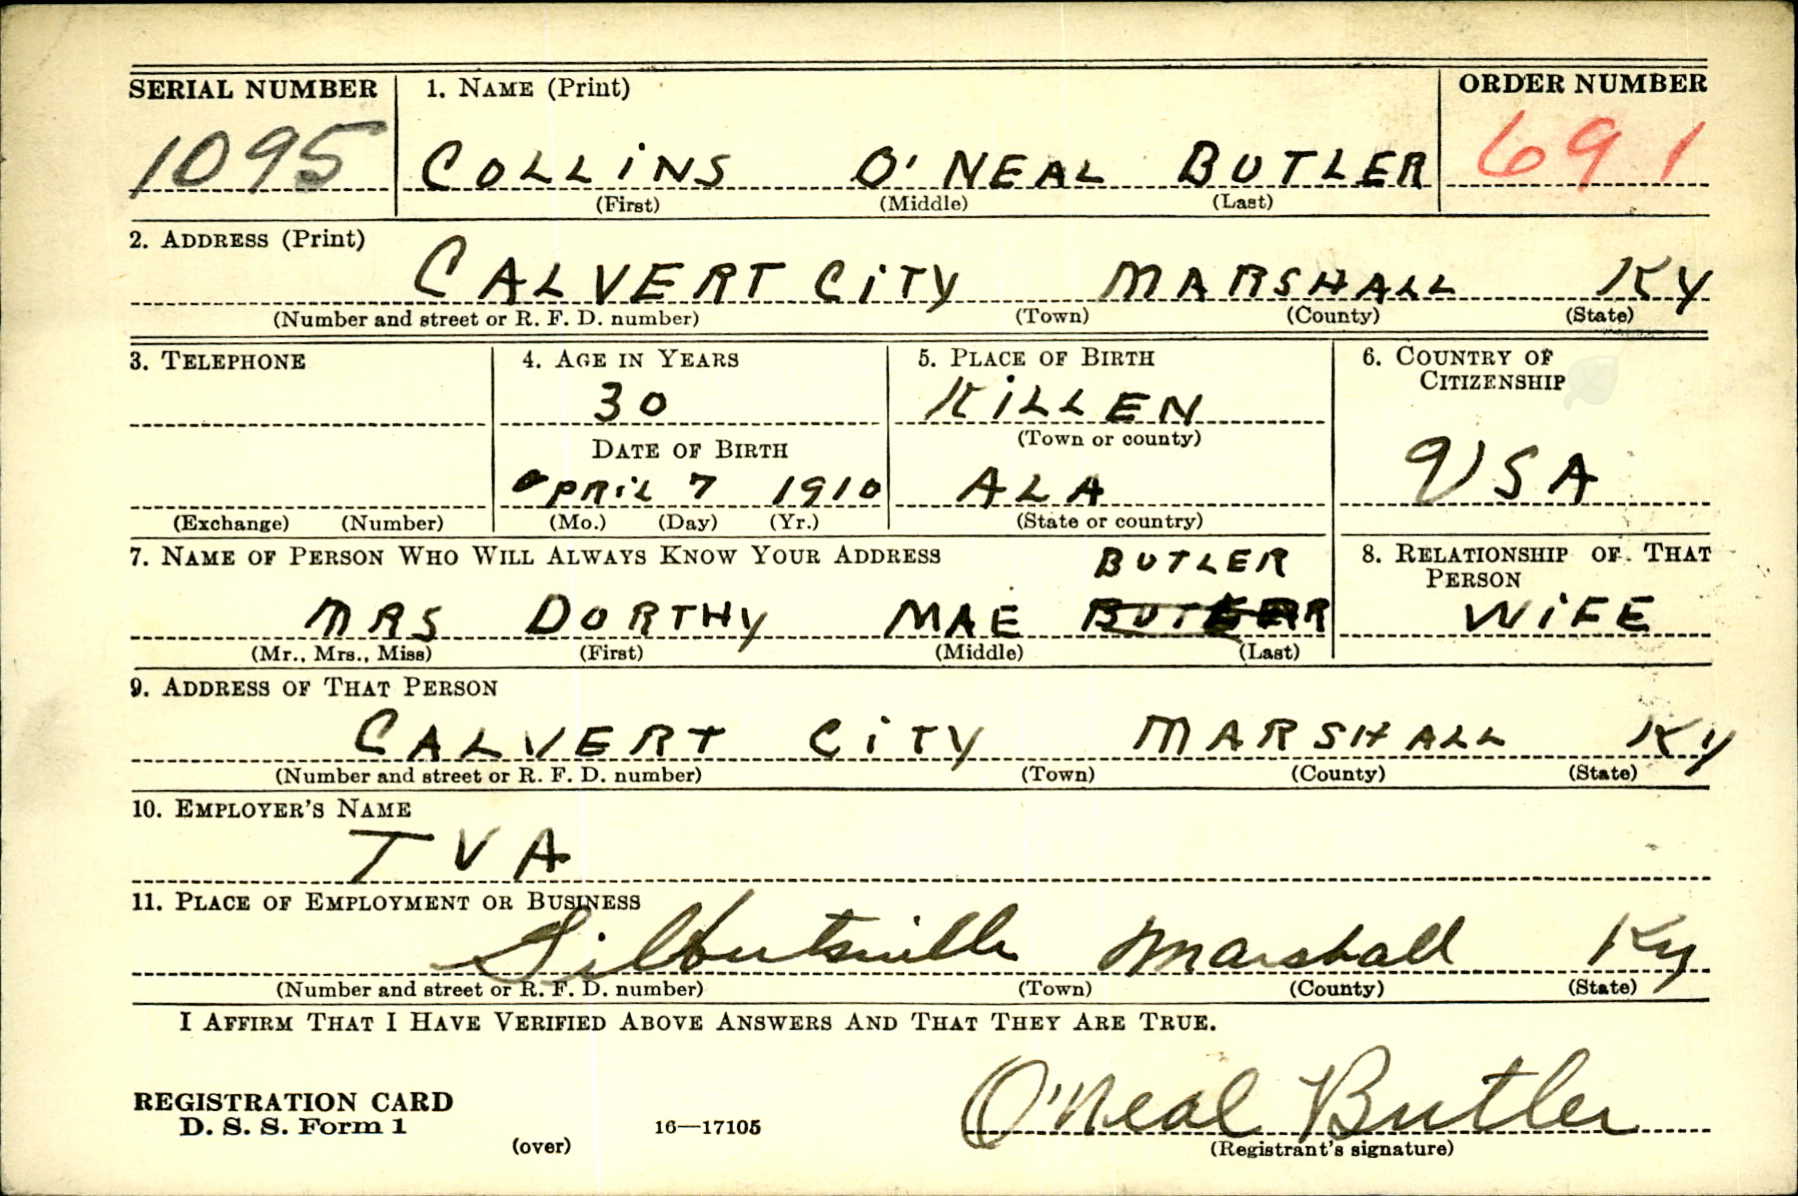 SERIAL NUMBER 1. NAME (Print) ORDER NUMBER
1095 COLLiNS O'NEAL BUTLER 691
(First) (Middle) (Last)
2. ADDRESS (Print)
CALVERT CiTY MARSHALL KY
(Number and street or R. F. D. number) (Town) (County) (State)
3. TELEPHONE 4. AGE IN YEARS 5. PLACE OF BIRTH 6. COUNTRY OF
CITIZENSHIP
30 KiLLEN
DATE OF BIRTH (Town or county)
USA
APRiL 7 1910 ALA
(Exchange) (Number) (Mo.) (Day) (Yr.) (State or country)
7. NAME OF PERSON WHO WILL ALWAYS KNOW YOUR ADDRESS BUTLER 8. RELATIONSHIP OF THAT
PERSON
MRS DORTHY MAE WiFE
(Mr., Mrs., Miss) (First) (Middle) (Last)
9. ADDRESS OF THAT PERSON
CALVERT CiTY MARSHALL KY
(Number and street or R. F. D. number) (Town) (County) (State)
10. EMPLOYER'S NAME
TVA
11. PLACE OF EMPLOYMENT OR BUSINESS
Gilbertsville Marshall Ky
(Number and street or R. F. D. number) (Town) (County) (State)
I AFFIRM THAT I HAVE VERIFIED ABOVE ANSWERS AND THAT THEY ARE TRUE.
O'Neal Butler
REGISTRATION CARD
D. S. S. Form 1 16—17105
(over) (Registrant's signature)